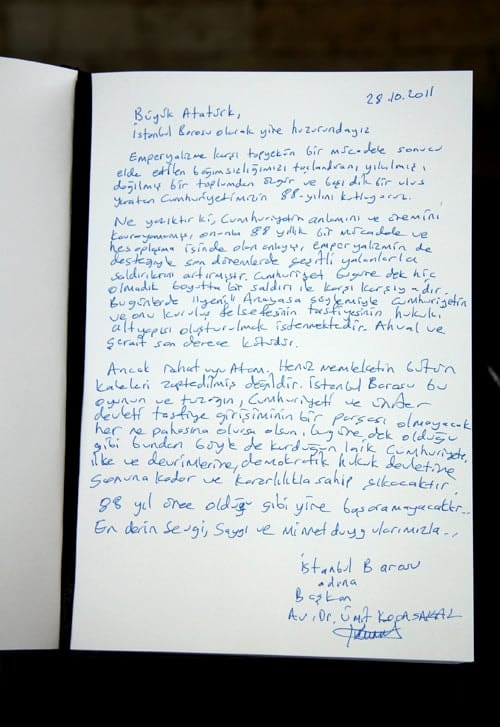 28.10.2011
Büyük Atatürk,
İstanbul Barosu olarak yine huzurundayız
Emperyalizme karşı topyekün bir mücadele sonucu
elde edilen bağımsızlığımızı taçlandıran, yıkılmış,
dağılmış bir toplumdan özgür ve başı dik bir ulus
yaratan Cumhuriyetimizin 88.yılını kutluyoruz.
Ne yazıktır ki, Cumhuriyetin anlamını ve önemini
kavrayamamış, onunla 88 yıllık bir mücadele ve
hesaplaşma içinde olan anlayış, emperyalizmin de
desteğiyle son dönemlerde çeşitli yalanlarla
saldırılarını artırmıştır. Cumhuriyet bugüne dek hiç
olmadık boyutta bir saldırı ile karşı karşıyadır.
Bugünlerde "yeni" Anayasa söylemiyle Cumhuriyetin
ve onu kuruluş felsefesinin tasfiyesinin hukuki
altyapısı oluşturulmak istenmektedir. Ahval ve
şerait son derece kötüdür.
Ancak rahat uyu Atam. Henüz memleketin bütün
kaleleri zaptedilmiş değildir. İstanbul Barosu bu
oyunun ve tuzağın, Cumhuriyeti ve üniter
devleti tasfiye girişiminin bir parçası olmayacak
her ne pahasına olursa olsun, bugüne dek olduğu
gibi bundan böyle de kurduğun laik Cumhuriyete,
ilke ve devrimlerine, demokratik hukuk devletine
sonuna kadar ve kararlılıkla sahip çıkacaktır.
88 yıl önce olduğu gibi yine başaramayacaklar..
En derin Sevgi, Saygı ve Minnet duygularımızla..
İstanbul Barosu
adına
Başkan
Av. Dr. Ümit KOCASAKAL